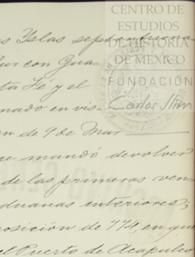 CENTRO DE
ESTUDIOS
DE HISTORIA
DE MEXICO
FUNDACIÓN
Carlos Slim
Islas
con Gua
Fe y el
nado en vis
en de 9 de Mar
ce mandó devolver
de las primeras ven
duanas interiores,
posición de 774, en que
el Puerto de Acapulco